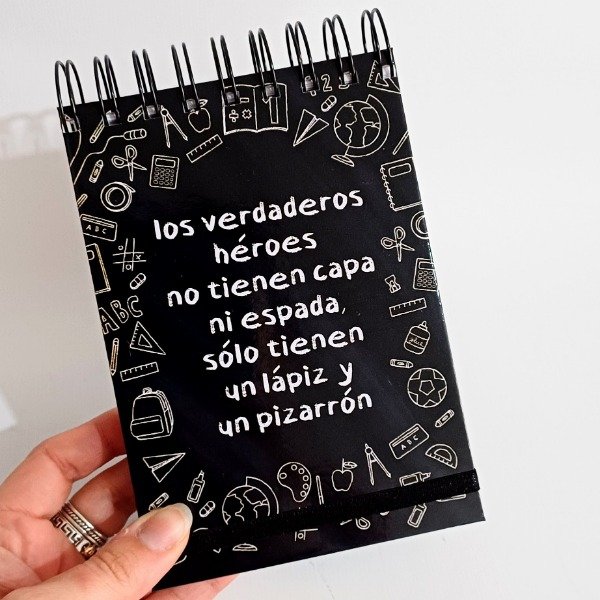 1 2 3
los verdaderos
héroes
no tienen capa
ni espada,
sólo tienen
un lápiz y
un pizarrón
ABC
ABC
glue
ABC